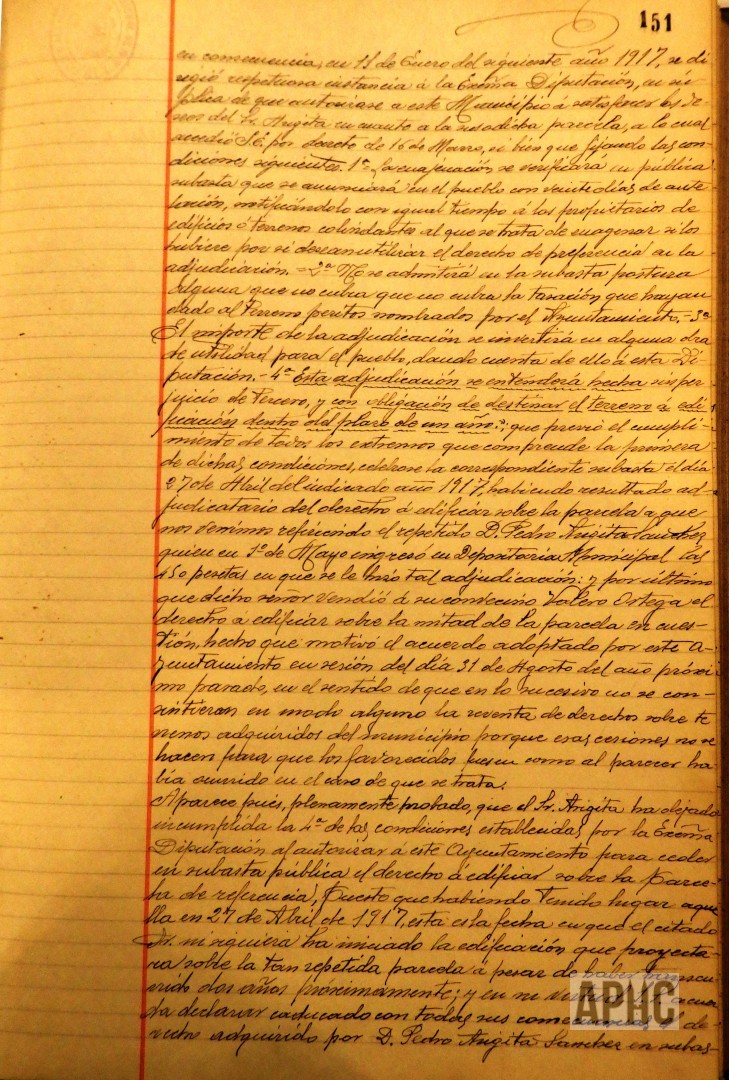 151
en consecuencia, en 11 de Enero del siguiente año 1917, se di
rigió respetuosa instancia á la Excma Diputación, en sú-
plica de que autorizase a este Municipio á satisfacer los de-
seos del Sr. Angita en cuanto a la susodicha parcela, a lo cual
accedió S.E. por decreto de 16 de Marzo, si bien que fijando las con-
diciones siguientes. 1ª La enajenación se verificará en pública
subasta que se anunciará en el pueblo con veinte días de ante-
lación, notificándolo con igual tiempo á los propietarios de
edificios ó terrenos colindantes al que se trata de enagenar si los
hubiere por si desean utilizar el derecho de preferencia en la
adjudicación. = 2ª No se admitirá en la subasta postura
alguna que no cubra que no cubra la tasación que hayan
dado al terreno peritos nombrados por el Ayuntamiento. - 3ª
El importe de la adjudicación se invertirá en alguna obra
de utilidad para el pueblo, dando cuenta de ello á esta Di-
putación. - 4ª Esta adjudicación se entenderá hecha sin per-
juicio de tercero, y con obligación de destinar el terreno á edi-
ficación dentro del plazo de un año.; que previó el cumpli-
miento de todos los extremos que comprende la primera
de dichas condiciones, celebrose la correspondiente subasta el día
27 de Abril del indicado año 1917, habiendo resultado ad-
judicatario del derecho á edificar sobre la parcela a que
nos venimos refiriendo el repetido D. Pedro Angita Sanchez
quien en 1º de Mayo ingresó en Depositaría Municipal las
450 pesetas en que se le hizo tal adjudicación: y por último
que dicho señor vendió á su convecino Valero Ortega el
derecho a edificar sobre la mitad de la parcela en cues-
tión, hecho que motivó el acuerdo adoptado por este A-
yuntamiento en sesión del día 31 de Agosto del año próxi
mo pasado, en el sentido de que en lo sucesivo no se con-
sintieran en modo alguno la reventa de derechos sobre te
rrenos adquiridos del municipio porque esas cesiones no se
hacen para que los favorecidos como al parecer ha-
bía ocurrido en el caso de que se trata.
Aparece pués, plenamente probado, que el Sr. Angita ha dejado
incumplida la 4ª de las condiciones establecidas por la Excma
Diputación al autorizar á este Ayuntamiento para ceder
en subasta pública el derecho á edificar sobre la parce-
la de referencia, puesto que habiendo tenido lugar aque
lla en 27 de Abril de 1917, esta es la fecha en que el citado
Sr. ni siquiera ha iniciado la edificación que proyecta-
ra sobre la tan repetida parcela á pesar de haber transcu-
rrido dos años próximamente; y en su virtud S.E. acuer
da declarar caducado con todas sus consecuencias el de-
recho adquirido por D. Pedro Angita Sanchez en subas-
APHC